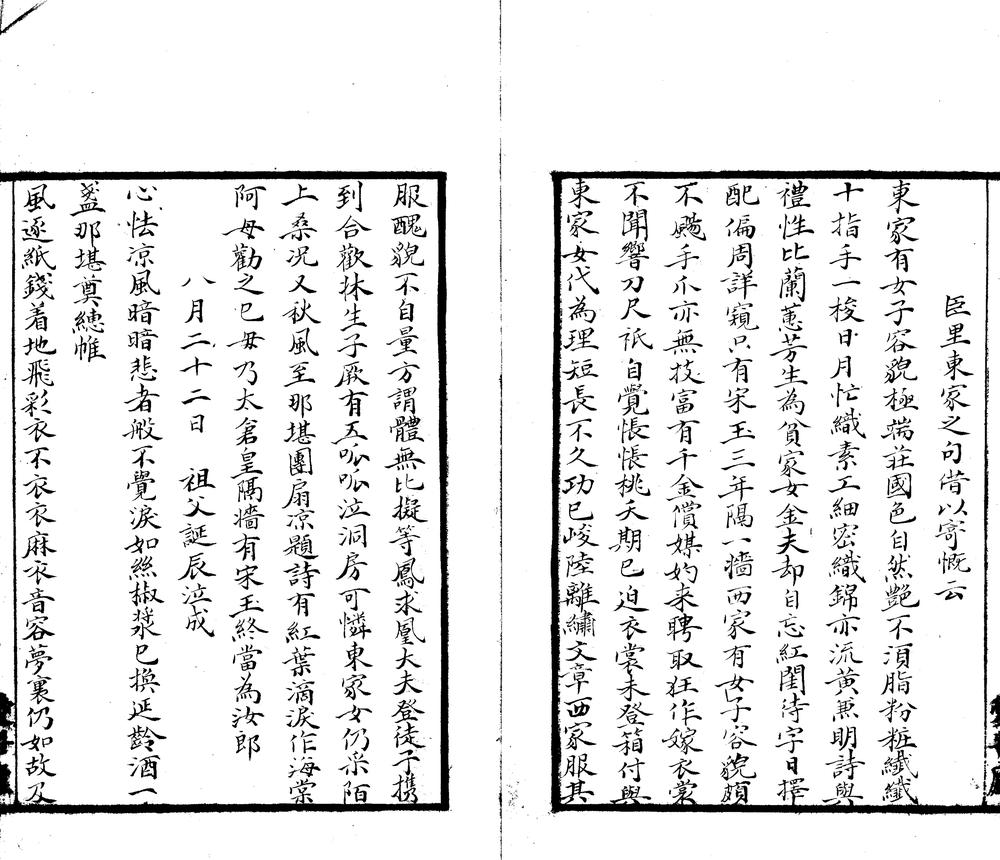 臣里東家之句借以寄慨云
東家有女子容貌極端莊國色自然艷不須脂粉粧纖纖
十指手一梭日月忙織素工細密織錦亦流黃兼明詩與
禮性比蘭蕙芳生為貧家女金夫却自忘紅閨待字日擇
配偏周詳窺只有宋玉三年隔一墻西家有女子容貌頗
不颺手爪亦無技富有千金償媒妁来聘取狂作嫁衣裳
不聞響刀尺祇自覺悵悵桃夭期已迫衣裳未登箱付與
東家女代為理短長不久功已峻陸離繡文章西家服其
服醜貌不自量方謂體無比擬等鳳求凰大夫登徒子攜
到合歡牀生子厥有五呱呱泣洞房可憐東家女仍采陌
上桑况又秋風至那堪團扇凉題詩有紅葉滴淚作海棠
阿母勸之已毋乃太倉皇隔墻有宋玉終當為汝郎
八月二十二日 祖父誕辰泣成
心怯凉風暗暗悲者般不覺淚如絲椒漿已換延齡酒一
盞那堪奠繐帷
風逐紙錢着地飛彩衣不衣衣麻衣音容夢裏仍如故及